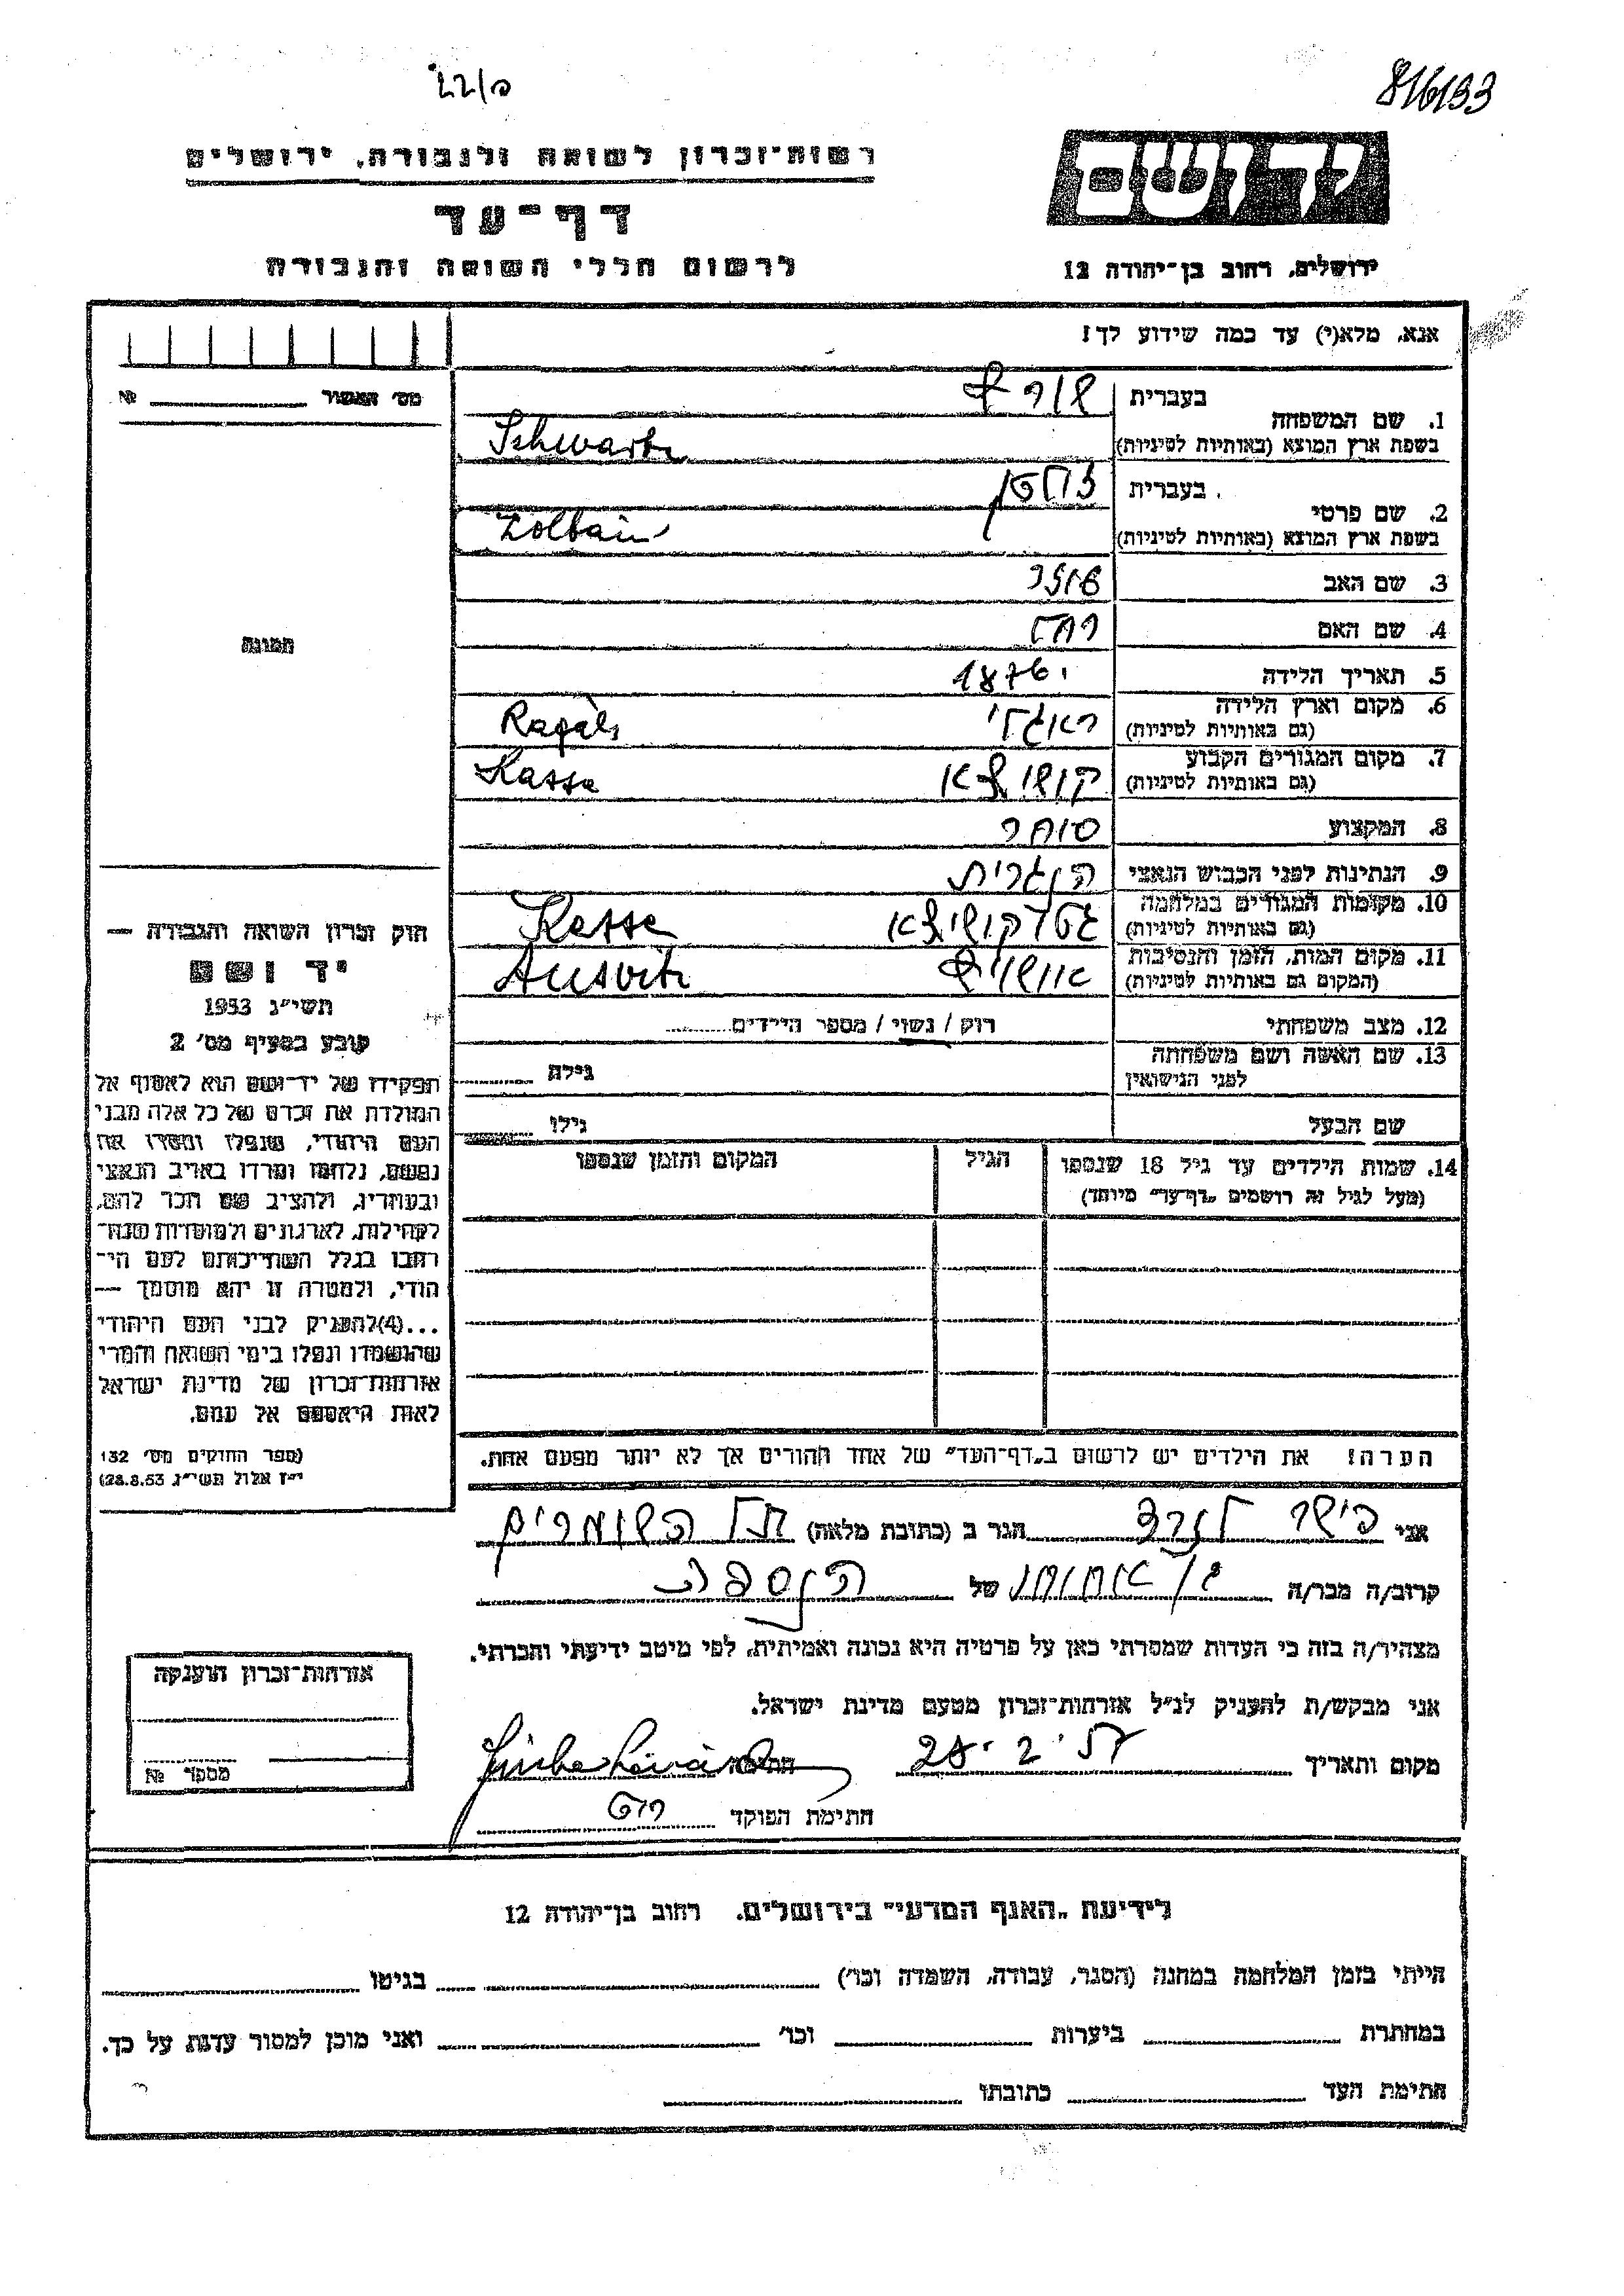 816133
כ/22
יד ושם
ירושלים, רחוב בן־יהודה 12
רשות־זכרון לשואה ולגבורה, ירושלים
דף־עד
לרשום חללי השואה והגבורה
אנא, מלא(י) עד כמה שידוע לך!
מס׳ האשור № 
תמונה
1. שם המשפחה בעברית שורץ
בשפת ארץ המוצא (באותיות לטיניות) Schwartz
2. שם פרטי בעברית זולטן
בשפת ארץ המוצא (באותיות לטיניות) Zoltain
3. שם האב
4. שם האם רחל
5. תאריך הלידה 1876
6. מקום וארץ הלידה
(גם באותיות לטיניות)
7. מקום המגורים הקבוע קושיצא
(גם באותיות לטיניות) Kassa
8. המקצוע סוחר
9. הנתינות לפני הכבוש הנאצי הונגרית
10. מקומות המגורים במלחמה גטו קושיצא
(גם באותיות לטיניות) Kassa
11. מקום המות, הזמן והנסיבות אושויץ
(המקום גם באותיות לטיניות) Ausvitz
12. מצב משפחתי רוק / נשוי / מספר הילדים
13. שם האשה ושם משפחתה
לפני הנישואין גילה
שם הבעל גילו
14. שמות הילדים עד גיל 18 שנספו הגיל המקום והזמן שנספו
(מעל לגיל זה רושמים „דף־עד" מיוחד)
הערה! את הילדים יש לרשום ב„דף־העד" של אחד ההורים אך לא יותר מפעם אחת.
חוק זכרון השואה והגבורה —
יד ושם
תשי״ג 1953
קובע בסעיף מס׳ 2
תפקידו של יד־ושם הוא לאסוף אל
המולדת את זכרם של כל אלה מבני
העם היהודי, שנפלו ומסרו את
נפשם, נלחמו ומרדו באויב הנאצי
ובעוזריו, ולהציב שם וזכר להם,
לקהילות, לארגונים ולמוסדות שנח־
רבו בגלל השתייכותם לעם הי־
הודי, ולמטרה זו יהא מוסמך —
...(4) להעניק לבני העם היהודי
שהושמדו ונפלו בימי השואה והמרי
אזרחות־זכרון של מדינת ישראל
לאות היאספם אל עמם.
(ספר החוקים מס׳ 132
י״ז אלול תשי״ג 28.8.53)
אני הגר ב (כתובת מלאה) תל השומרים
קרוב/ה מכר/ה של הנספה
מצהיר/ה בזה כי העדות שמסרתי כאן על פרטיה היא נכונה ואמיתית, לפי מיטב ידיעתי והכרתי.
אני מבקש/ת להעניק לנ״ל אזרחות־זכרון מטעם מדינת ישראל.
מקום ותאריך חתימה
חתימת הפוקד
אזרחות־זכרון הוענקה
מספר №
לידיעת „האגף המדעי" בירושלים, רחוב בן־יהודה 12
הייתי בזמן המלחמה במחנה (הסגר, עבודה, השמדה וכו׳) בגיטו
במחתרת ביערות וכו׳ ואני מוכן למסור עדות על כך.
חתימת העד כתובתו